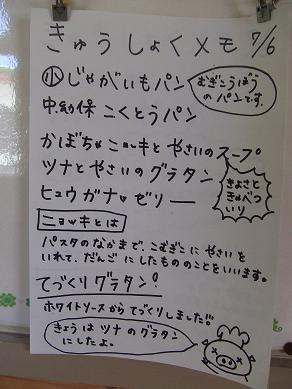 きゅうしょくメモ 7/6
小 じゃがいもパン
むぎこうぼう
のパンです。
中幼保 こくとうパン
かぼちゃニョッキとやさいのスープ
ツナとやさいのグラタン
ヒュウガナツゼリー
きよさと
きゃべつ
いり
ニョッキとは
パスタのなかまで、こむぎこにやさいを
いれて、だんごにしたもののことをいいます。
てづくりグラタン!
ホワイトソースからてづくりしました!!
きょうはツナのグラタン
にしたよ。